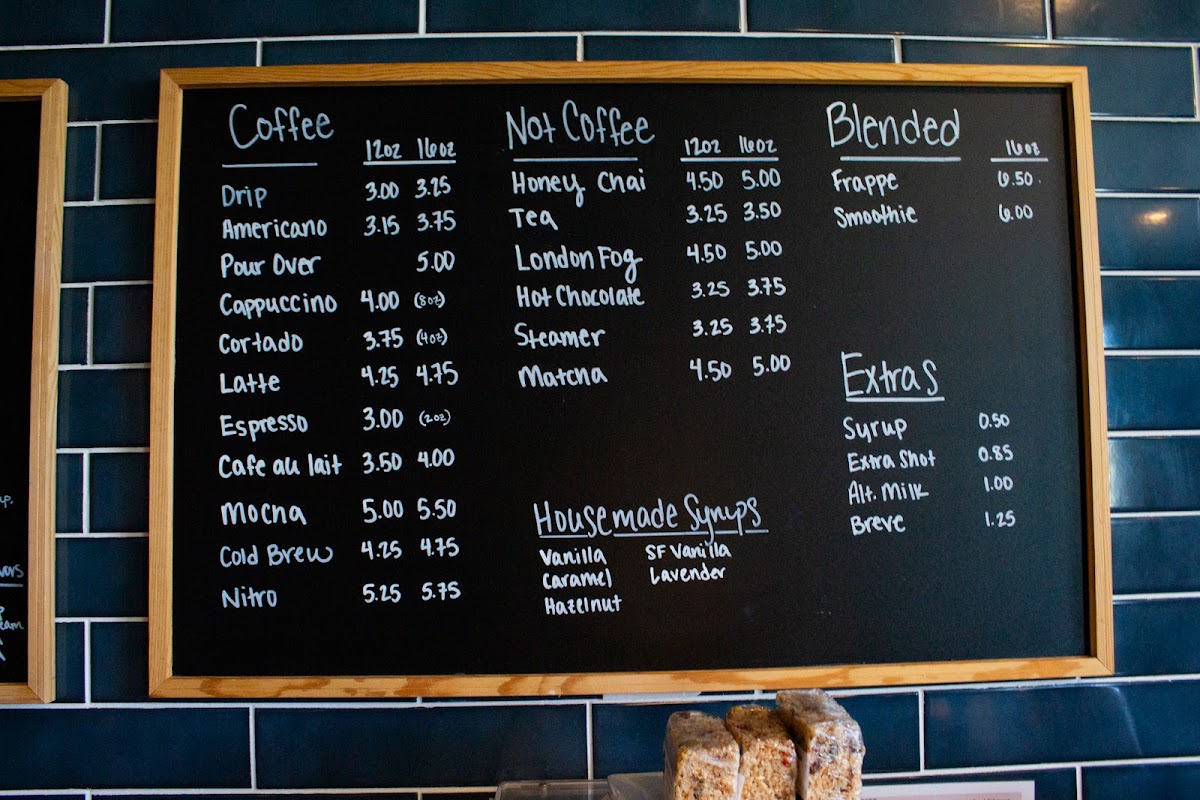 Coffee
12oz 16oz
Drip 3.00 3.25
Americano 3.15 3.75
Pour Over 5.00
Cappuccino 4.00 (8oz)
Cortado 3.75 (4oz)
Latte 4.25 4.75
Espresso 3.00 (2oz)
Cafe au lait 3.50 4.00
Mocha 5.00 5.50
Cold Brew 4.25 4.75
Nitro 5.25 5.75
Not Coffee
12oz 16oz
Honey Chai 4.50 5.00
Tea 3.25 3.50
London Fog 4.50 5.00
Hot Chocolate 3.25 3.75
Steamer 3.25 3.75
Matcha 4.50 5.00
Housemade Syrups
Vanilla SF Vanilla
Caramel Lavender
Hazelnut
Blended
16oz
Frappe 6.50
Smoothie 6.00
Extras
Syrup 0.50
Extra Shot 0.85
Alt. Milk 1.00
Breve 1.25